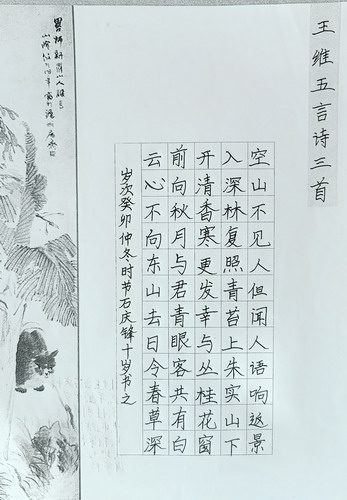 王维五言诗三首
空山不见人但闻人语响返景
入深林复照青苔上朱实山下
开清香寒更发幸与丛桂花窗
前向秋月与君青眼客共有白
云心不向东山去日令春草深
岁次癸卯仲冬时节石庆锋十岁书之